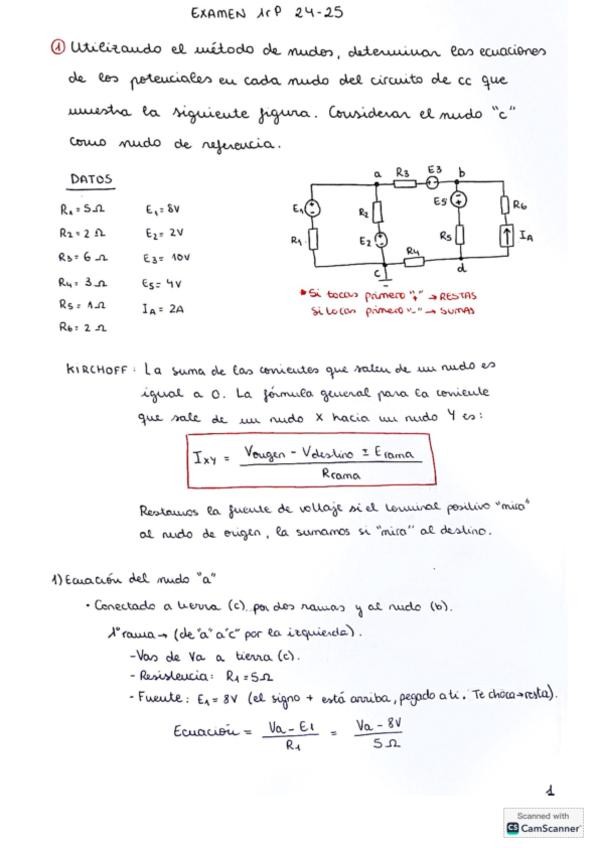 EXAMEN 1rP 24-25
① Utilizando el método de nudos, determinar las ecuaciones
de los potenciales en cada nudo del circuito de cc que
muestra la siguiente figura. Considerar el nudo "c"
como nudo de referencia.
DATOS
R1 = 5Ω E1 = 8V
R2 = 2Ω E2 = 2V
R3 = 6Ω E3 = 10V
R4 = 3Ω E5 = 4V
R5 = 1Ω IA = 2A
R6 = 2Ω
a R3 E3 b
E1 R2 E5 R6
R1 E2 R5 IA
R4
c d
* Si tocas primero "+" → RESTAS
Si tocas primero "-" → SUMAS
KIRCHOFF: La suma de las corrientes que salen de un nudo es
igual a 0. La fórmula general para la corriente
que sale de un nudo X hacia un nudo Y es:
IXY = (Vorigen - Vdestino ± Erama) / Rrama
Restamos la fuente de voltaje si el terminal positivo "mira"
al nudo de origen, la sumamos si "mira" al destino.
1) Ecuación del nudo "a"
• Conectado a tierra (c) por dos ramas y al nudo (b).
1ª rama → (de "a" a "c" por la izquierda).
- Vas de Va a tierra (c).
- Resistencia: R1 = 5Ω
- Fuente: E1 = 8V (el signo + está arriba, pegado a ti. Te choca → resta).
Ecuación = (Va - E1) / R1 = (Va - 8V) / 5Ω
1
Scanned with
CS CamScanner